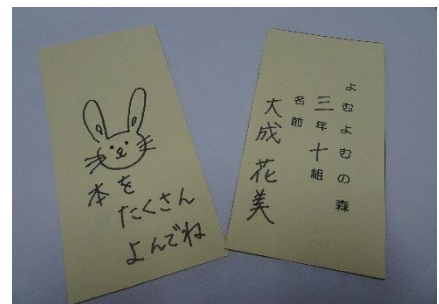 本を
たくさん
よんでね
よむよむの森
三年十組
名前
大成花美